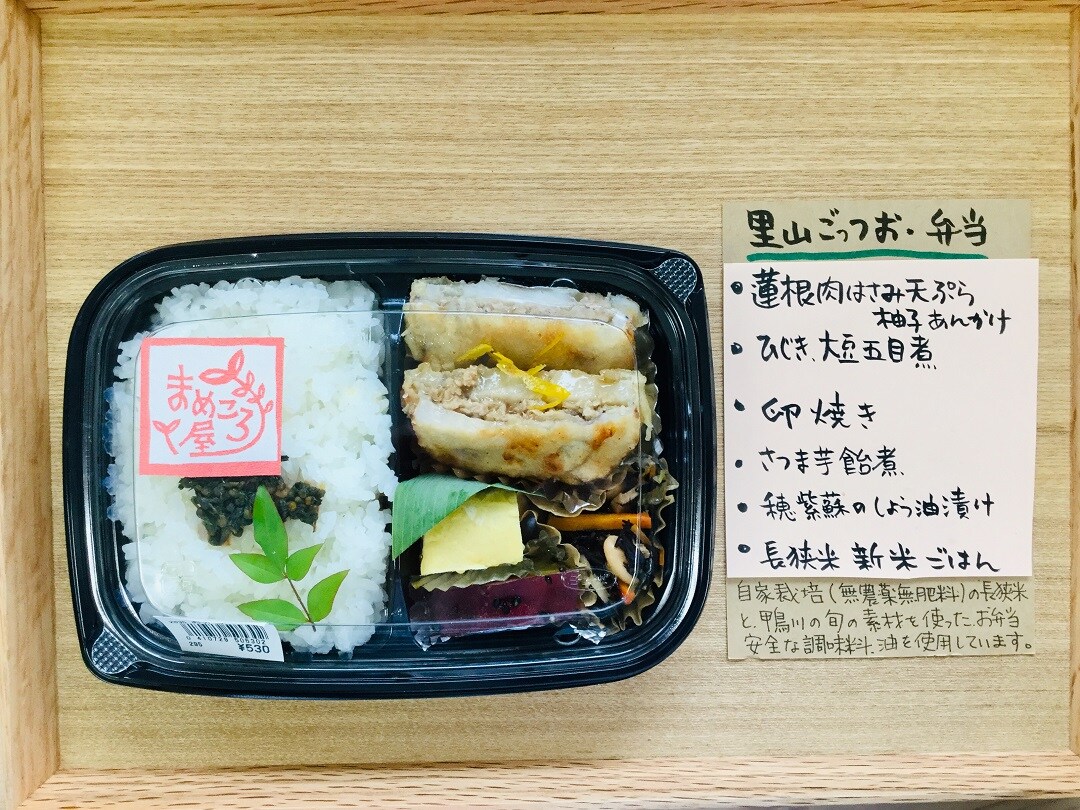 まめころ
屋
0 410729 505302
295
¥530
里山ごっつお・弁当
• 蓮根肉はさみ天ぷら
柚子あんかけ
• ひじき、大豆五目煮
• 卵焼き
• さつま芋飴煮
• 穂紫蘇のしょう油漬け
• 長狭米 新米ごはん
自家栽培(無農薬無肥料)の長狭米
と、鴨川の旬の素材を使ったお弁当
安全な調味料、油を使用しています。